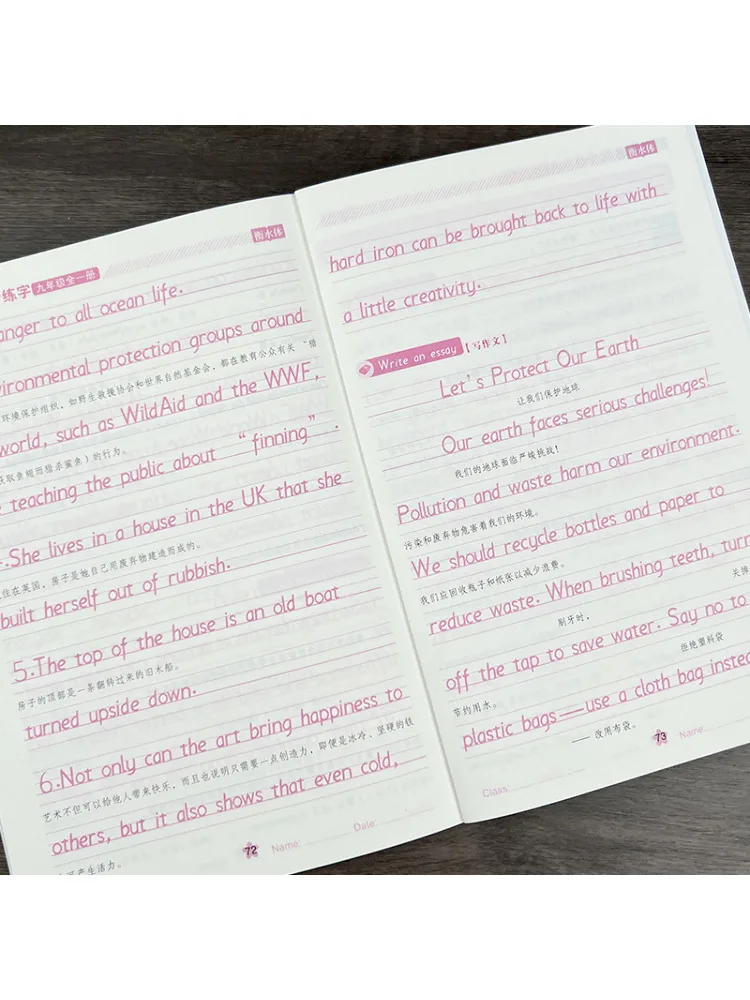 衡水体
练字 九年级全一册
anger to all ocean life.
ironmental protection groups around
环境保护组织，如野生救援协会和世界自然基金会，都在教育公众有关“猎
world, such as WildAid and the WWF,
取鱼翅而猎杀鲨鱼）的行为。
teaching the public about “finning”.
.She lives in a house in the UK that she
住在英国，房子是她自己用废弃物建造而成的。
built herself out of rubbish.
5.The top of the house is an old boat
房子的顶部是一条翻转过来的旧木船。
turned upside down.
6.Not only can the art bring happiness to
艺术不但可以给他人带来快乐，而且也说明只需要一点创造力，即便是冰冷、坚硬的铁
others, but it also shows that even cold,
产生活力。
72 Name: Date:
衡水体
hard iron can be brought back to life with
a little creativity.
Write an essay 【写作文】
Let's Protect Our Earth
让我们保护地球
Our earth faces serious challenges!
我们的地球面临严峻挑战！
Pollution and waste harm our environment.
污染和废弃物危害着我们的环境。
We should recycle bottles and paper to
我们应回收瓶子和纸张以减少浪费。
reduce waste. When brushing teeth, turn
刷牙时， 关掉
off the tap to save water. Say no to
节约用水。 拒绝塑料袋
plastic bags—use a cloth bag instea
——改用布袋。
73 Name:
Class: